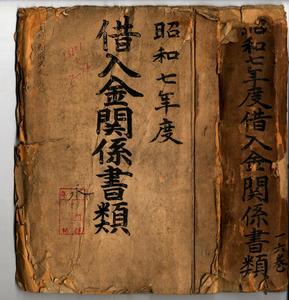 昭和七年度
借入金関係書類
昭和七年度借入金関係書類
一六巻